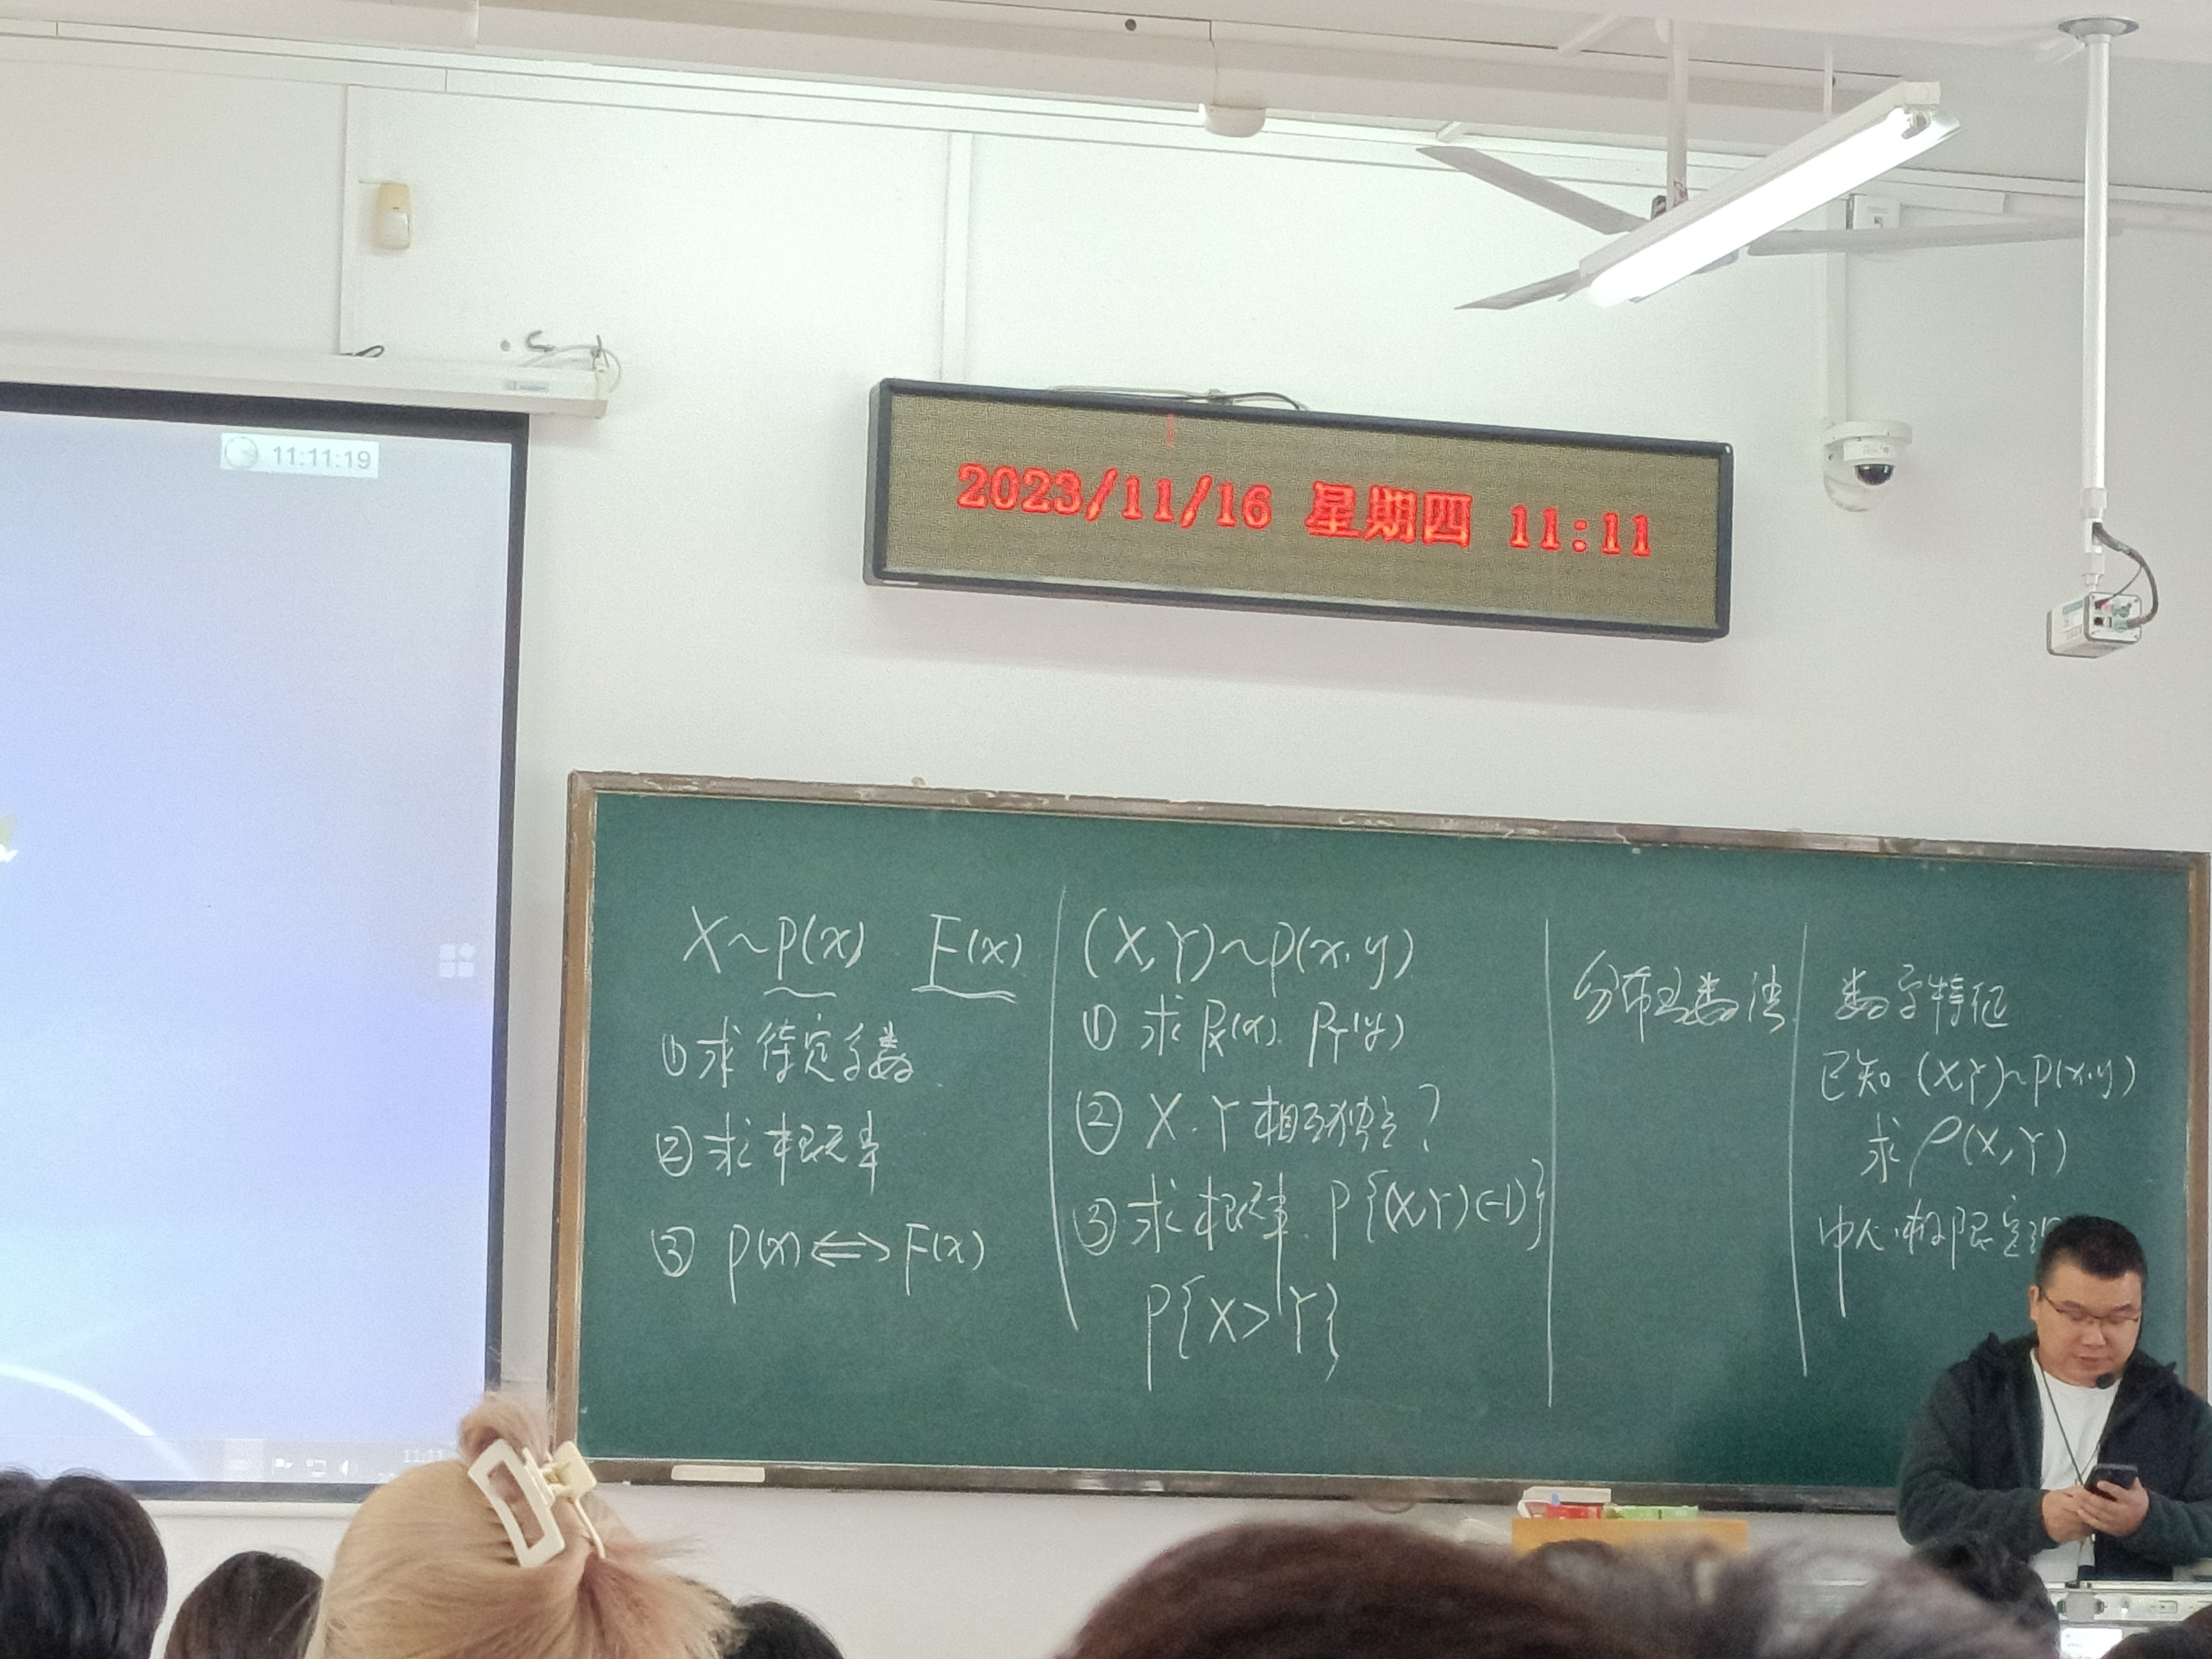 11:11:19
2023/11/16 星期四 11:11
X~p(x) F(x)
① 求待定系数
② 求概率
③ p(x)⟺F(x)
(X,Y)~p(x,y)
① 求 p_X(x). p_Y(y)
② X.Y 相互独立?
③ 求概率. P{(X,Y)∈D}
P{X>Y}
分布函数法
数字特征
已知 (X,Y)~p(x,y)
求 ρ(X,Y)
中心极限定理
11:11